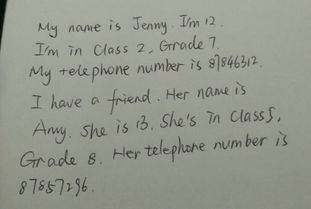 My name is Jenny. I'm 12.
I'm in Class 2, Grade 7.
My telephone number is 87846312.
I have a friend. Her name is
Amy. She is 13. She's in Class 5,
Grade 8. Her telephone number is
87857296.